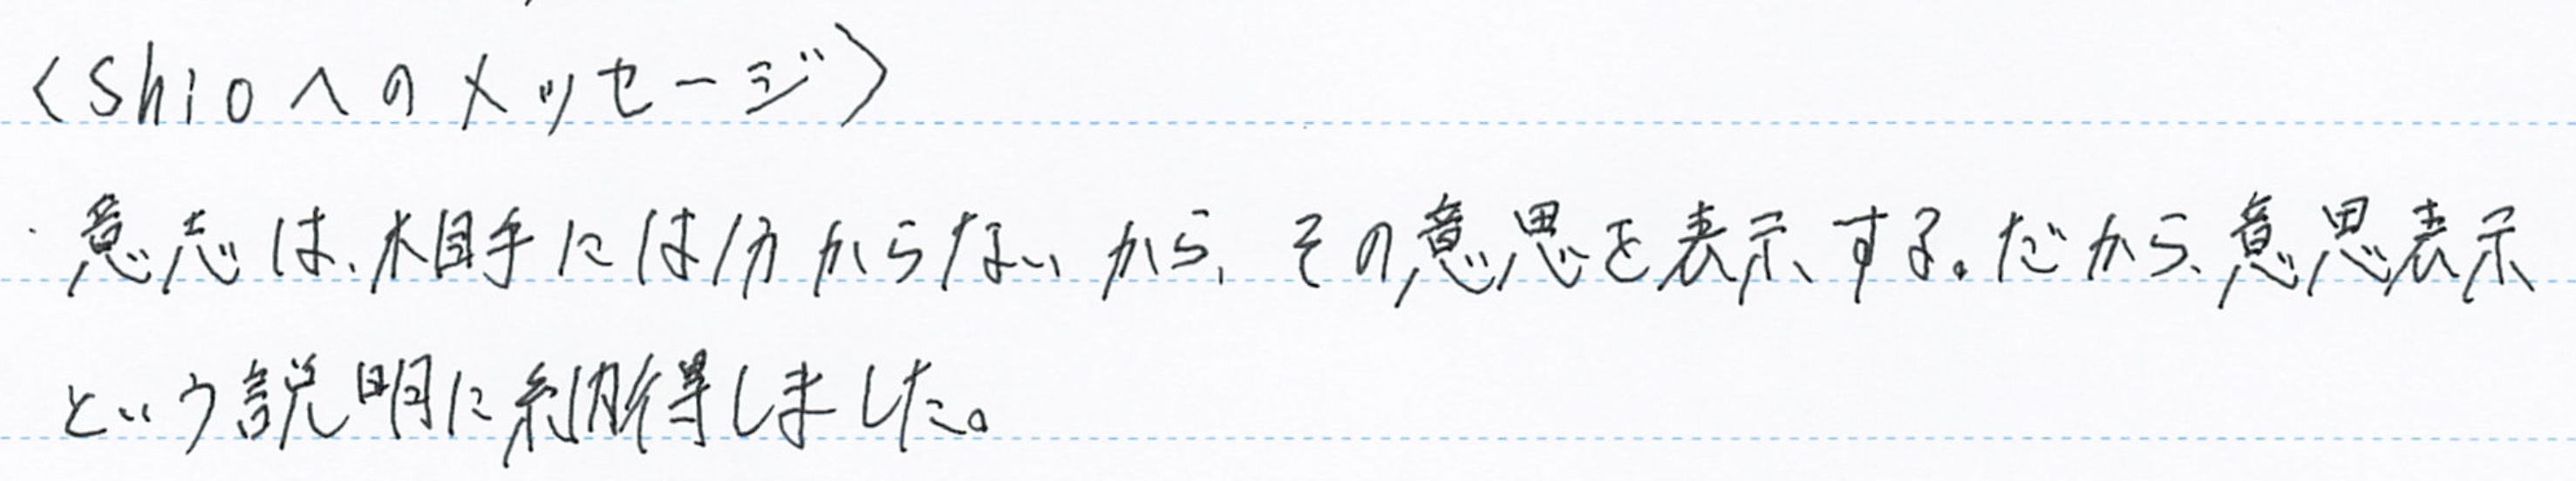 〈shioへのメッセージ〉
・意志は、相手には分からないから、その意思を表示する。だから、意思表示
という説明に納得しました。